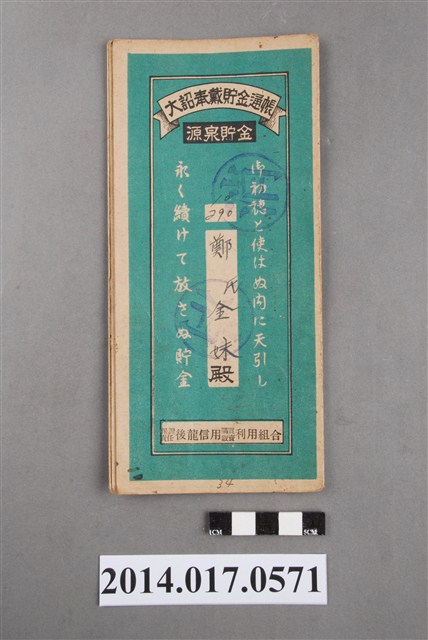 大詔奉戴貯金通帳
源泉貯金
御初穂と使はぬ内に天引し
永く續けて放さぬ貯金
290
鄭氏金妹殿
保證責任後龍信用購買販賣利用組合
34
1CM
5CM
2014.017.0571